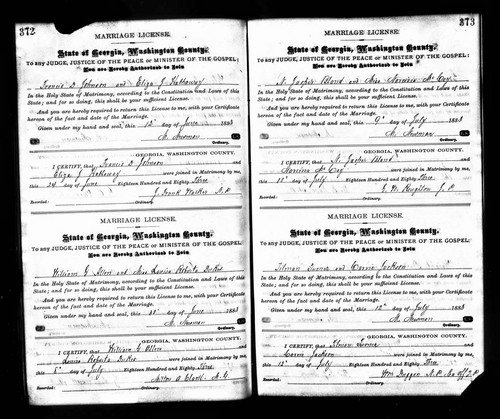 372
MARRIAGE LICENSE.
State of Georgia, Washington County.
To any JUDGE, JUSTICE OF THE PEACE or MINISTER OF THE GOSPEL:
You are Hereby Authorized to Join
Johnson and Eliza J
In the Holy State of Matrimony, according to the Constitution and Laws of this
State; and for so doing, this shall be your sufficient License.
And you are hereby required to return this License to me, with your Certificate
hereon of the fact and date of the Marriage.
Given under my hand and seal, this 12 day of June 1883
Newman
Ordinary.
GEORGIA, WASHINGTON COUNTY.
I CERTIFY, that Johnson and
Eliza J were joined in Matrimony by me,
this 24 day of June Eighteen Hundred and Eighty Three
J. Frank Walker
Recorded: Ordinary.
MARRIAGE LICENSE.
State of Georgia, Washington County.
To any JUDGE, JUSTICE OF THE PEACE or MINISTER OF THE GOSPEL:
You are Hereby Authorized to Join
William G and Miss Roberta
In the Holy State of Matrimony, according to the Constitution and Laws of this
State; and for so doing, this shall be your sufficient License.
And you are hereby required to return this License to me, with your Certificate
hereon of the fact and date of the Marriage.
Given under my hand and seal, this day of June 1883
Newman
Ordinary.
GEORGIA, WASHINGTON COUNTY.
I CERTIFY, that William G and
Roberta were joined in Matrimony by me,
this day of July Eighteen Hundred and Eighty Three
A Clark
Recorded: Ordinary.
373
MARRIAGE LICENSE.
State of Georgia, Washington County.
To any JUDGE, JUSTICE OF THE PEACE or MINISTER OF THE GOSPEL:
You are Hereby Authorized to Join
N. Jasper Bland and Miss McCoy
In the Holy State of Matrimony, according to the Constitution and Laws of this
State; and for so doing, this shall be your sufficient License.
And you are hereby required to return this License to me, with your Certificate
hereon of the fact and date of the Marriage.
Given under my hand and seal, this 9 day of July 1883
Newman
Ordinary.
GEORGIA, WASHINGTON COUNTY.
I CERTIFY, that N. Jasper Bland and
McCoy were joined in Matrimony by me,
this 11 day of July Eighteen Hundred and Eighty Three
J. P.
Recorded: Ordinary.
MARRIAGE LICENSE.
State of Georgia, Washington County.
To any JUDGE, JUSTICE OF THE PEACE or MINISTER OF THE GOSPEL:
You are Hereby Authorized to Join
and Jackson
In the Holy State of Matrimony, according to the Constitution and Laws of this
State; and for so doing, this shall be your sufficient License.
And you are hereby required to return this License to me, with your Certificate
hereon of the fact and date of the Marriage.
Given under my hand and seal, this 12 day of July 1883
Newman
Ordinary.
GEORGIA, WASHINGTON COUNTY.
I CERTIFY, that and
Jackson were joined in Matrimony by me,
this 12 day of July Eighteen Hundred and Eighty Three
Duggan
Recorded: Ordinary.